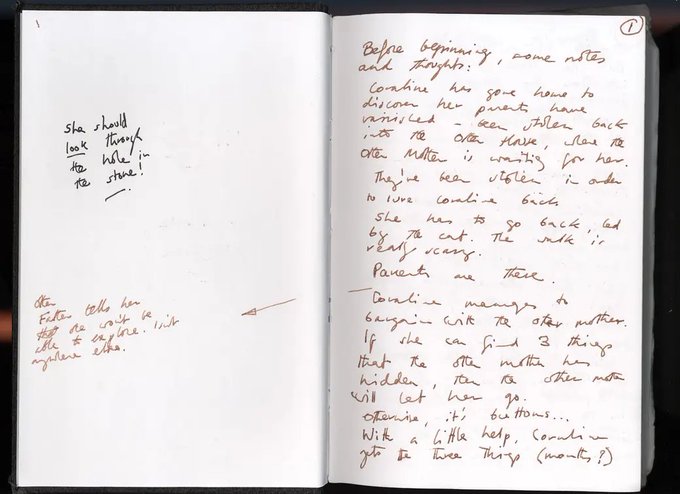 1
she should
look through
the hole in
the stone!
Other
Father tells her
she won't be
able to explore. Isn't
anywhere else.
1
Before beginning, some notes
and thoughts:
Coraline has gone home to
discover her parents have
vanished - been stolen back
into the Other House, where the
Other Mother is waiting for her.
They've been stolen in order
to lure Coraline back
She has to go back, led
by the cat. The walk is
really scary.
Parents are there.
Coraline manages to
bargain with the other mother.
If she can find 3 things
that the other mother has
hidden, then the other mother
will let her go.
Otherwise, it's buttons...
With a little help, Coraline
gets the three things (months?)